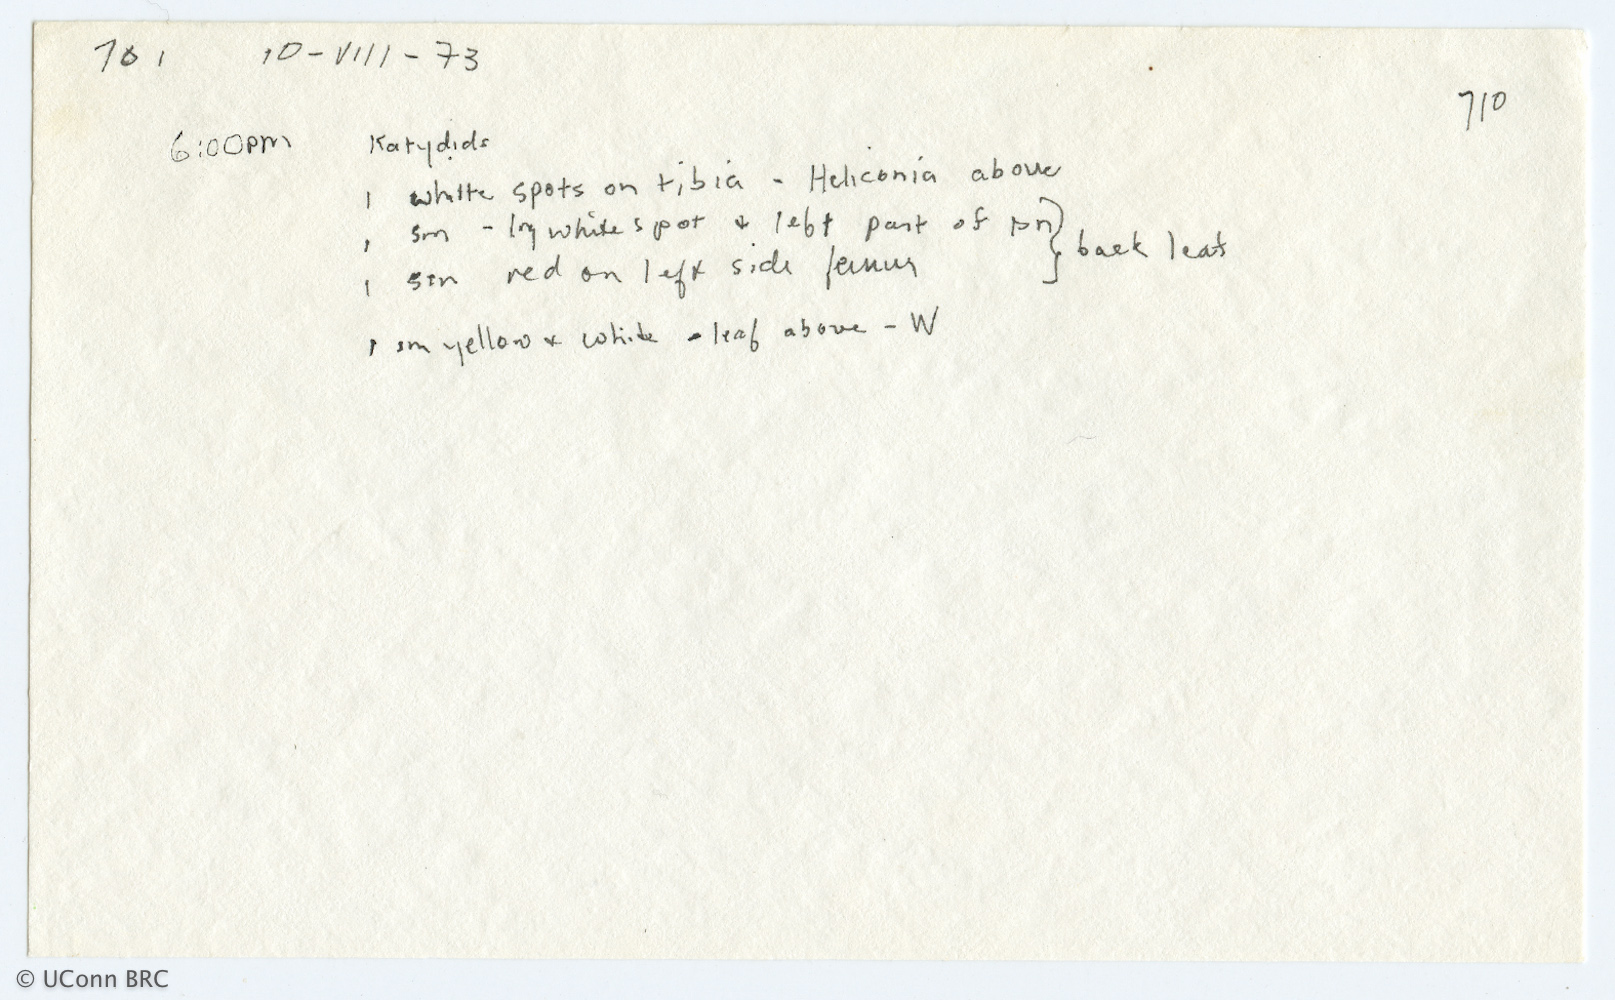 701 10-VIII-73
710
6:00pm Katydids
1 white spots on tibia - Heliconia above
1 sm - lrg white spot & left part of pn } back leaf
1 sm red on left side femur
1 sm yellow & white - leaf above - W
© UConn BRC